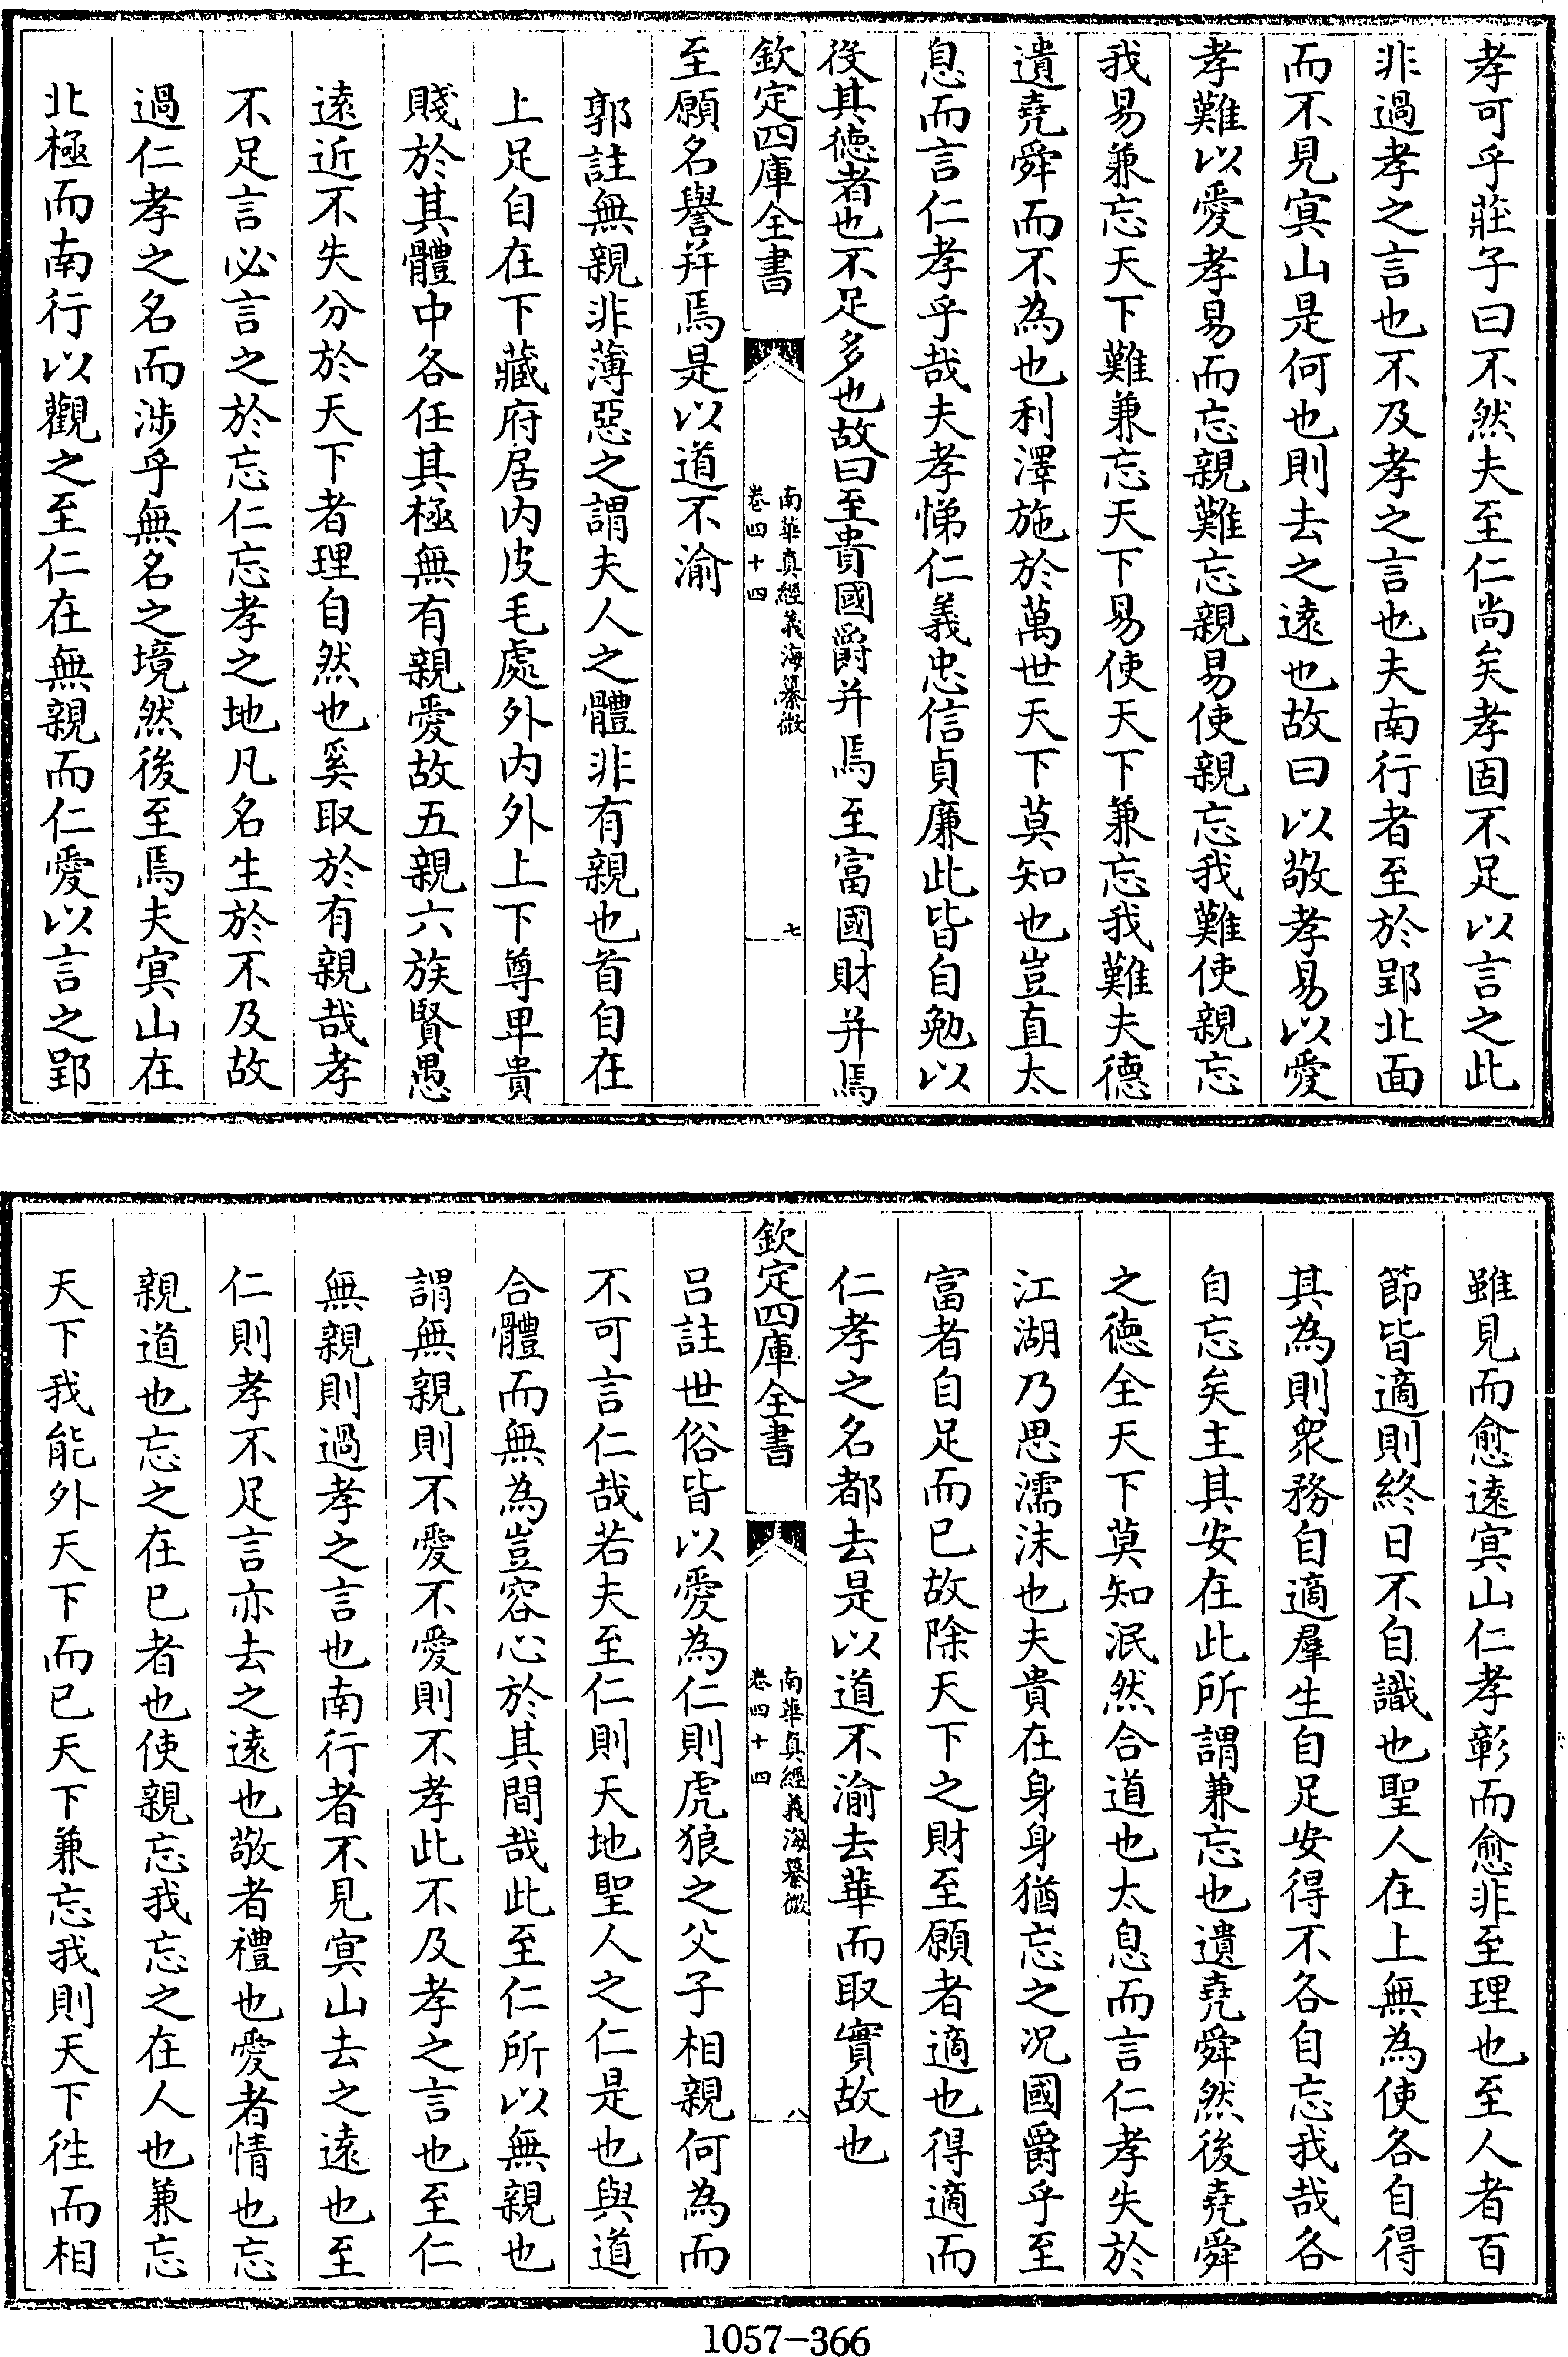 孝可乎莊子曰不然夫至仁尚矣孝固不足以言之此
非過孝之言也不及孝之言也夫南行者至於郢北面
而不見冥山是何也則去之遠也故曰以敬孝易以愛
孝難以愛孝易而忘親難忘親易使親忘我難使親忘
我易兼忘天下難兼忘天下易使天下兼忘我難夫德
遺堯舜而不為也利澤施於萬世天下莫知也豈直太
息而言仁孝乎哉夫孝悌仁義忠信貞廉此皆自勉以
役其德者也不足多也故曰至貴國爵并焉至富國財并焉
欽定四庫全書
南華真經義海纂微
卷四十四
七
至願名譽并焉是以道不渝
郭註無親非薄惡之謂夫人之體非有親也首自在
上足自在下藏府居内皮毛處外内外上下尊卑貴
賤於其體中各任其極無有親愛故五親六族賢愚
遠近不失分於天下者理自然也奚取於有親哉孝
不足言必言之於忘仁忘孝之地凡名生於不及故
過仁孝之名而涉乎無名之境然後至焉夫冥山在
北極而南行以觀之至仁在無親而仁愛以言之郢
雖見而愈遠冥山仁孝彰而愈非至理也至人者百
節皆適則終日不自識也聖人在上無為使各自得
其為則衆務自適羣生自足安得不各自忘我哉各
自忘矣主其安在此所謂兼忘也遺堯舜然後堯舜
之德全天下莫知泯然合道也太息而言仁孝失於
江湖乃思濡沫也夫貴在身身猶忘之况國爵乎至
富者自足而已故除天下之財至願者適也得適而
仁孝之名都去是以道不渝去華而取實故也
欽定四庫全書
南華真經義海纂微
卷四十四
八
吕註世俗皆以愛為仁則虎狼之父子相親何為而
不可言仁哉若夫至仁則天地聖人之仁是也與道
合體而無為豈容心於其間哉此至仁所以無親也
謂無親則不愛不愛則不孝此不及孝之言也至仁
無親則過孝之言也南行者不見冥山去之遠也至
仁則孝不足言亦去之遠也敬者禮也愛者情也忘
親道也忘之在已者也使親忘我忘之在人也兼忘
天下我能外天下而已天下兼忘我則天下徃而相
1057-366